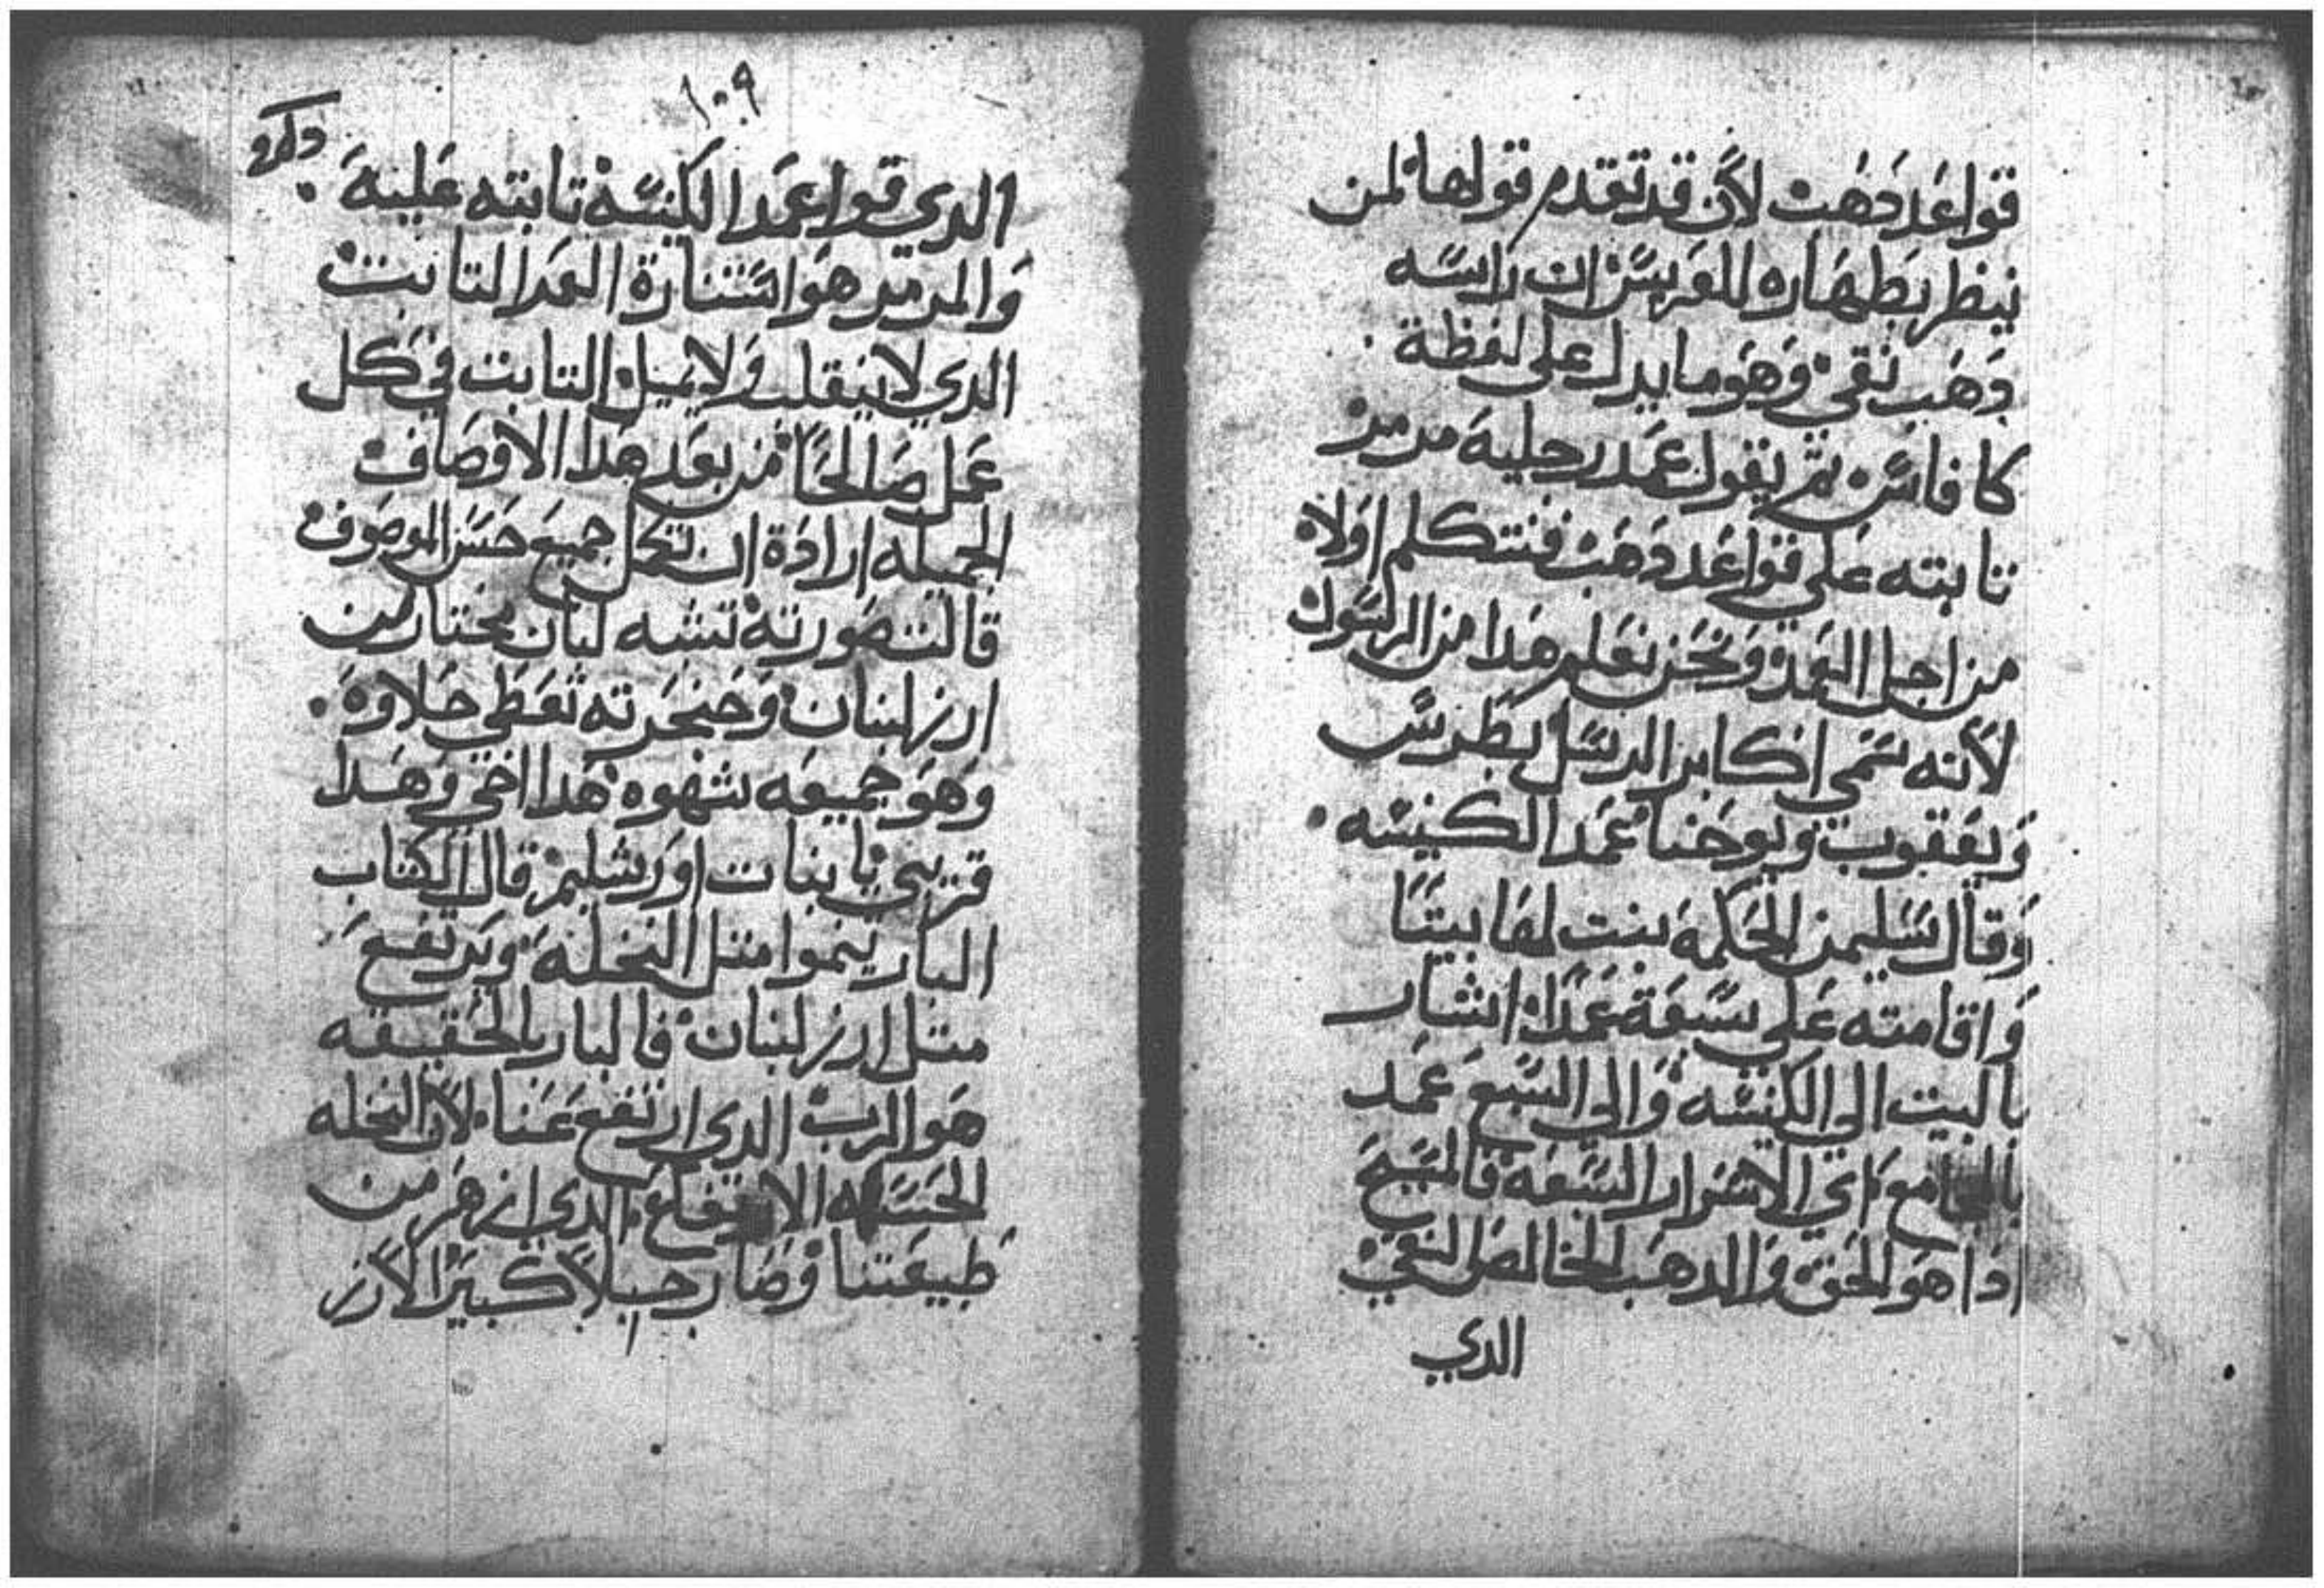 قواعد دهب لأن قد تقدم قولها لمن
ينظر بطهاره للعريس ان راسه
دهب نقي وهو ما يدل على لفظة
كافاس ثم يقول عمد رجليه مرمر
تابته علي قواعد دهب فنتكلم اولا
من اجل العمد ونحن نعلم هدا من الرسول
لأنه سمي اكابر الرسل بطرس
ويعقوب ويوحنا عمد الكنيسه
وقال سليمن الحكمه بنت لها بيتا
واقامته علي سبعة عمدا اشار
بالبيت الي الكنيسه والي السبع عمد
اي الاسرار السبعه فالمسيح
ادا هو الحق والدهب الخالص النقي
الدي
١٠٩
الدي قواعمد الكنيسة تابته عليه
والمرمر هو استنارة العمد التابت
الدي لا ينقلب ولا يميل التابت في كل
عمل صالحا من بعد هدا الأوصاف
الجميله ارادة ان تكمل جميع حسن الموصوف
قالت صورته تشبه لبان مختار من
ارز لبنان وحنجرته تعطي حلاوه
وهو جميعه شهوه هدا اخي وهدا
قريبي يا بنات اورشليم قال الكتاب
البار ينموا متل النخله ويرتفع
متل ارز لبنان فالبار بالحقيقه
هو الرب الدي ارتفع عنا لأن النخله
الحسنه الدي ازهر من
طبيعتنا وصار جبلا كبيرا لأرز